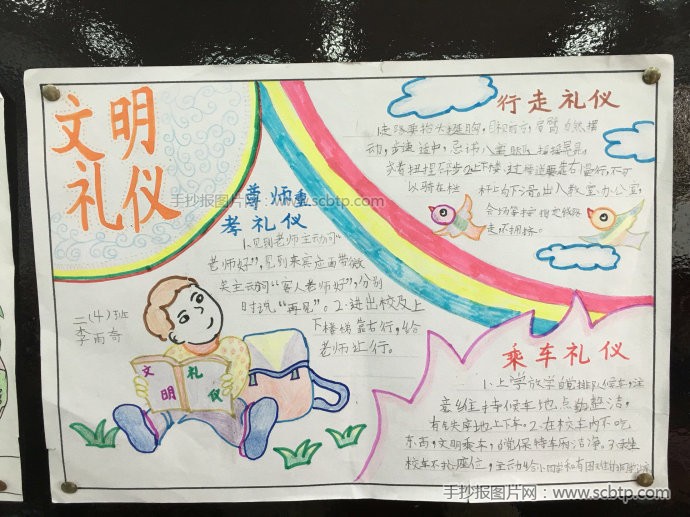 文明
礼仪
行走礼仪
走路要抬头挺胸，目视前方，肩臂自然摆
动，步速适中，忌讳八字脚，摇摇晃晃，
上下楼梯过楼道要靠右慢行，不可
以骑在栏杆上向下滑，出入教室办公室，
走
尊师重
孝礼仪
1.见到老师主动问“
老师好”，见到来宾应面带微
笑主动问“客人老师好”，分别
时说“再见”。2.进出校及上
下楼梯靠右行，给
老师让行。
二(4)班
李雨奇
文明
礼仪
乘车礼仪
1.上学放学自觉排队候车，注
意维持候车地点的整洁，
有秩序地上下车。2.在校车内不吃
东西，文明乘车，自觉保持车厢洁净。3.
校车不抢座位，主动给小同学和有困
手抄报图片网 www.scbtp.com
手抄报图片网：www.scbtp.com